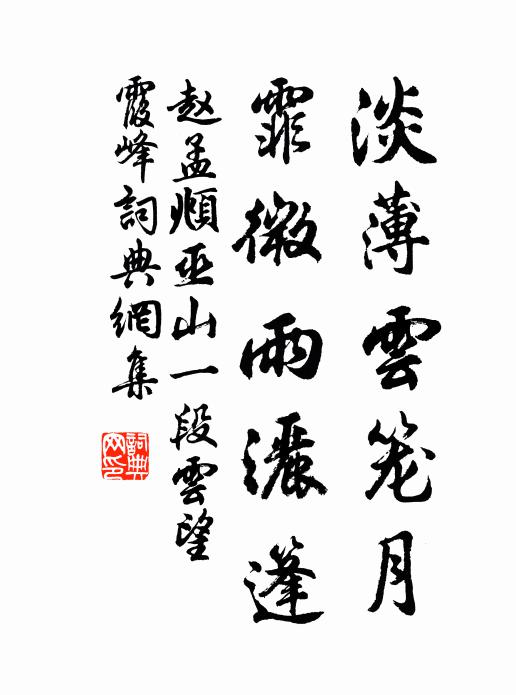 淡薄雲笼月
霏微雨灑篷
赵孟頫巫山一段雲望
霞峰詞典網集
詞典网印